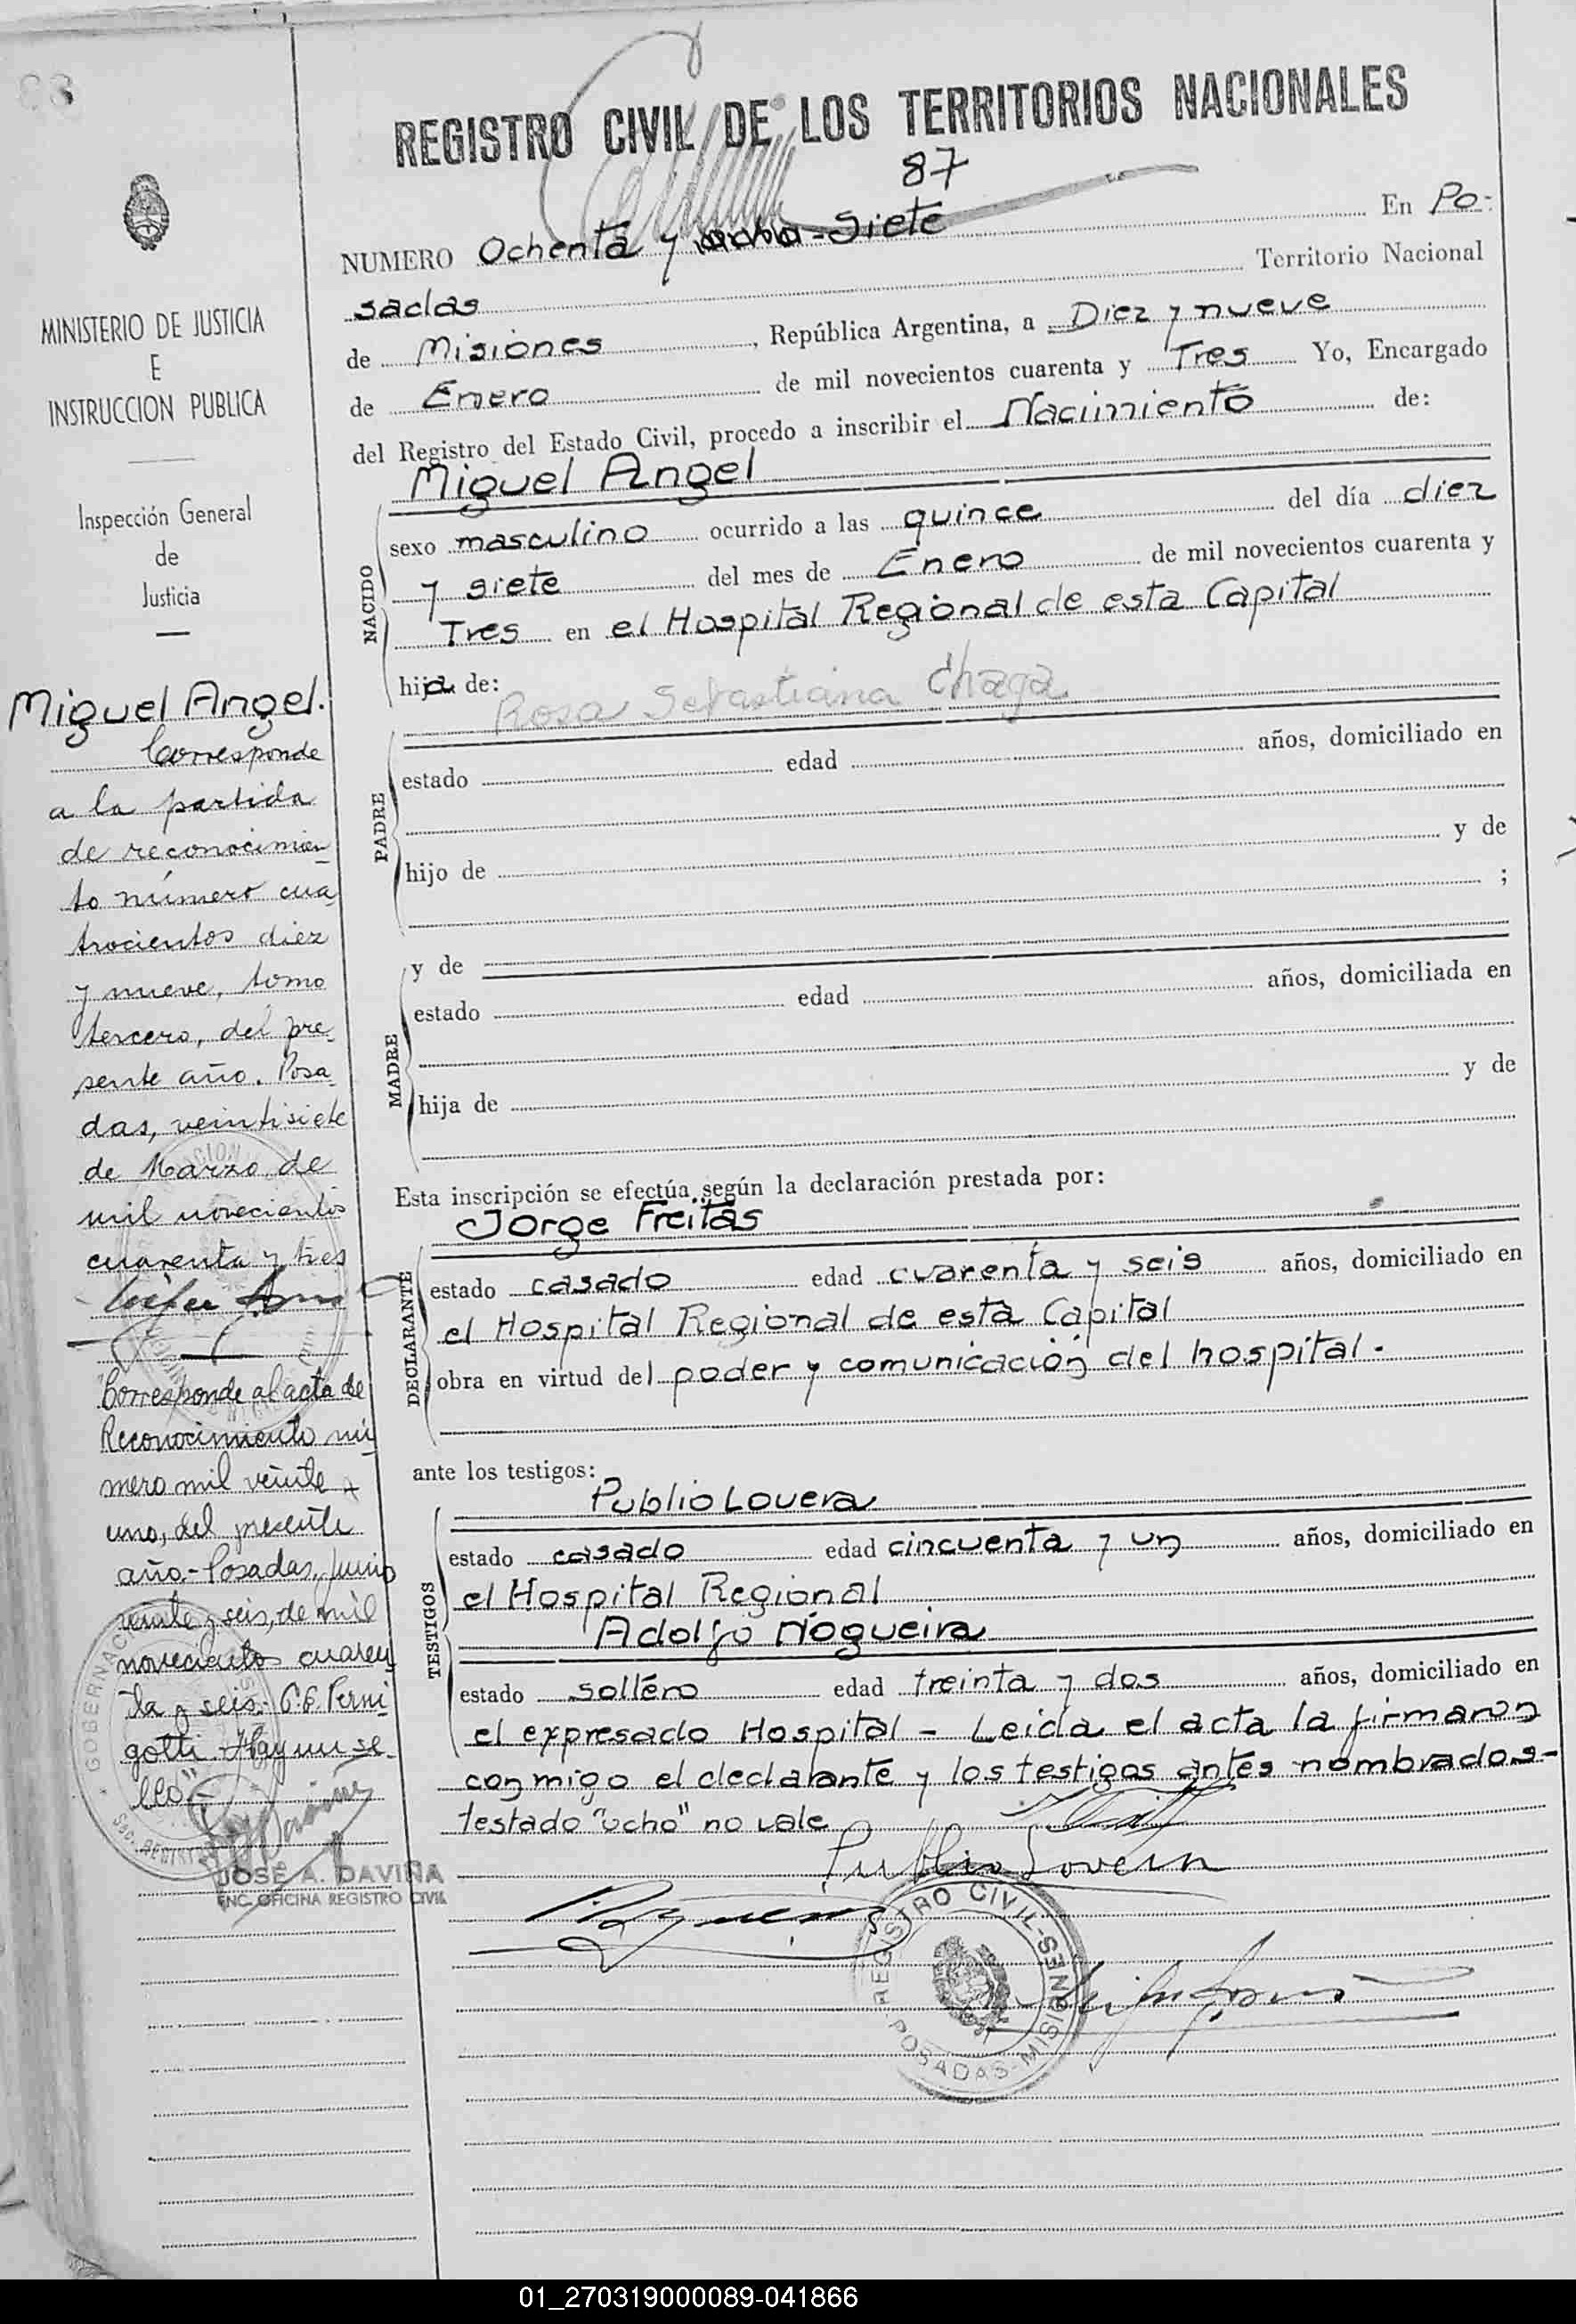 REGISTRO CIVIL DE LOS TERRITORIOS NACIONALES
87
NUMERO Ochenta y ocho - Siete En Po-
sadas Territorio Nacional
de Misiones, República Argentina, a Diez y nueve
de Enero de mil novecientos cuarenta y Tres Yo, Encargado
del Registro del Estado Civil, procedo a inscribir el Nacimiento de:
NACIDO
Miguel Angel
sexo masculino ocurrido a las quince del día diez
y siete del mes de Enero de mil novecientos cuarenta y
Tres en el Hospital Regional de esta Capital
hijo de: Rosa Sebastiana Chaga
PADRE
estado edad años, domiciliado en
hijo de y de
;
MADRE
y de
estado edad años, domiciliada en
hija de y de
Esta inscripción se efectúa según la declaración prestada por:
DECLARANTE
Jorge Freitas
estado casado edad cuarenta y seis años, domiciliado en
el Hospital Regional de esta Capital
obra en virtud del poder y comunicación del hospital.
ante los testigos:
TESTIGOS
Publio Lovera
estado casado edad cincuenta y un años, domiciliado en
el Hospital Regional
Adolfo Nogueira
estado soltéro edad treinta y dos años, domiciliado en
el expresado Hospital - Leida el acta la firmaron
conmigo el declarante y los testigos antes nombrados-
testado "ocho" no vale
Publio Lovera
REGISTRO CIVIL
POSADAS-MISIONES
MINISTERIO DE JUSTICIA
E
INSTRUCCION PUBLICA
Inspección General
de
Justicia
Miguel Angel.
Corresponde
a la partida
de reconocimien-
to número cua
trocientos diez
y nueve, tomo
tercero, del pre-
sente año. Posa
das, veintisiete
de Marzo de
mil novecientos
cuarenta y tres
Corresponde al acta de
Reconocimiento nú-
mero mil veinte y
uno, del presente
año.- Posadas, Junio
veinte y seis, de mil
novecientos cuaren
ta y seis. P.E. Perni-
gotti. Hay un se-
llo"-
JOSÉ A. DAVIÑA
ENC. OFICINA REGISTRO CIVIL
01_270319000089-041866